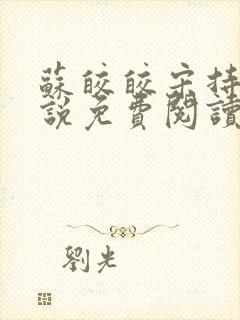 蘇皎皎宋持
説免費閱讀
劉光